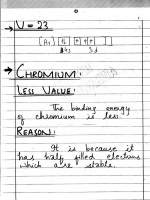 V = 23
[Ar] [↑↓] [↑ ↑ ↑ ]
4s 3d
→ CHROMIUM:
LESS VALUE:
The binding energy
of chromium is less.
REASON:
It is because it
has half filled electrons
which are stable.